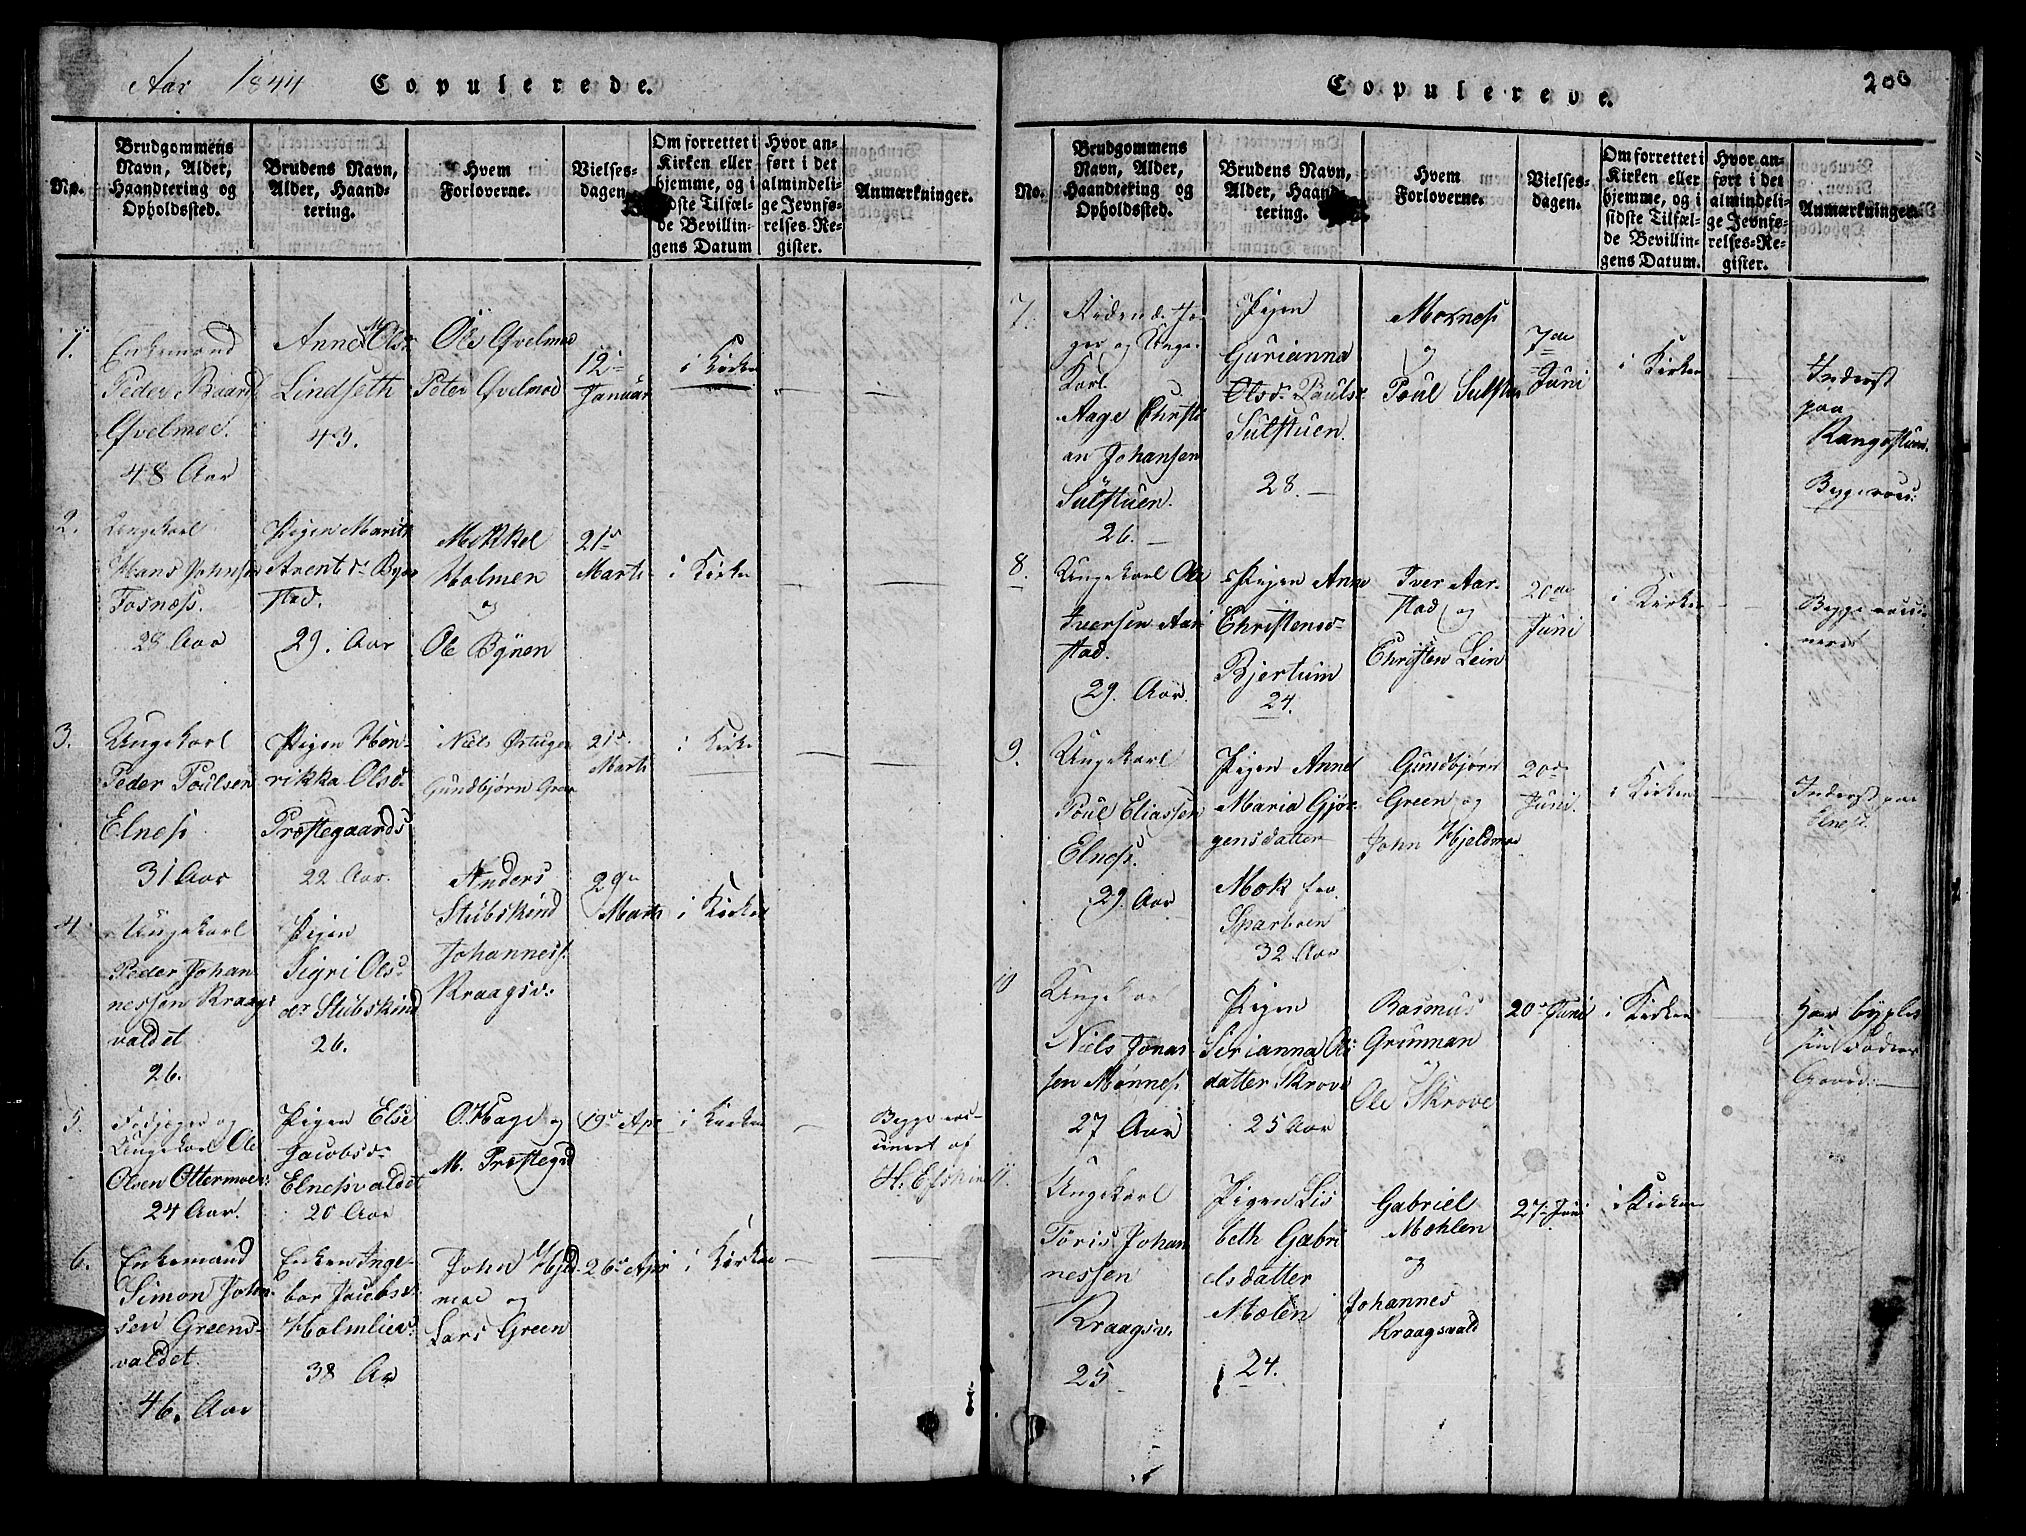 Aar 1844 Copulerede.
No.
Brudgommens
Navn, Alder,
Haandtering og
Opholdssted.
Brudens Navn,
Alder, Haand-
tering.
Hvem
Forloverne.
Vielses-
dagen
Om forrettet i
Kirken eller
hjemme, og i
sidste Tilfæl-
de Bevillin-
gens Datum
Hvor an-
ført i det
almindeli-
ge Jevnfø-
relses-Re-
gister.
Anmærkninger.
1.
Enkemand
Peder Baard
Qvelmoe.
48 Aar
Anne Olsr
Lindseth
43.
Ole Qvelmoe
Peter Qvelmoe
12
Januar
i Kirken
2.
Ungekarl
Hans Johnsen
Fosness.
28 Aar
Pigen Marith
Arentsdr
stad.
29. Aar
Mekkel
Holmen
og
Ole Bynen
21
Marts
i Kirke
3.
Ungekarl
Peder Poulsen
Elness
31 Aar
Pigen Hen-
rikka Olsd.
Præstegaards
22 Aar.
Niels
Gundbjørn
21
Marts
i Kirke
4
Ungekarl
Peder Johan
nessen Kraags
valdet
26.
Pigen
Sigri Ols
dr Stubskind
26.
Anders
Stubskind
Johanness.
Kraagsv.
29
Marts
i Kirken
5.
Ungekarl Ole
Olsen Ottermoe
24 Aar.
Pigen Else
Jacobsdr
Elnessvaldet
20 Aar
O. Hage og
M. Præstegrd
19 Apr
i Kirken
Begge vac-
cineret af
6.
Enkemand
Simon John
sen Greens-
valdet.
46. Aar
Enken Inge-
bor Jacobs
Holmlien
38 Ar
John Hjeld
moe og
Lars Green
26 Apr
i Kirken
Copulerede.
200
No.
Brudgommens
Navn, Alder,
Haandtering og
Opholdssted.
Brudens Navn,
Alder, Haand
tering.
Hvem
Forloverne.
Vielses-
dagen.
Om forrettet i
Kirken eller
hjemme, og i
sidste Tilfæl-
de Bevillin-
gens Datum.
Hvor an-
ført i det
almindeli-
ge Jevnfø-
relses-Re-
gister.
Anmærkninger.
7.
Ridende Jæ-
ger og Unge-
Karl
Aage Christi
an Johansen
Sulstuen.
26.
Pigen
Gurianna
Olsdr Paulsr
Sulstuen.
28.
Mornes
og
Poul Sulstu
7de
Juni
i Kirken
Inderst
paa
Kongsstuen.
Begge vacc:
8.
Ungekarl Ole
Iversen Aar
stad.
29. Aar.
Pigen Anne
Christensd
Bjertum
24.
Iver Aar-
stad og
Christen Lein
20de
Juni
i Kirken
Begge vacci
neret
9.
Ungekarl
Poul Eliassen
Elness.
29. Aar
Pigen Anne
Maria Gjør-
gensdatter
Mok fra
Sparboen
32 Aar
Gundbjørn
Green og
John Hjeldmoe
20
Juni.
i Kirken
Inderst paa
Elness.
10
Ungekarl
Niels Jonas-
sen Mønness
27 Aar
Pigen
Serianna Ols
datter Skrove
25 Aar
Rasmus
Grunnan
Ole Skrove
20 Juni
i Kirken
Har bygslet
sin Faders
Gaard.
11.
Ungekarl
Toris Johan
nessen
Kraagsv.
25
Pigen Lis
beth Gabri
elsdatter
Mælen
24.
Gabriel
Mohlen
og
Johannes
Kraagsvald
27 Juni
i Kirken